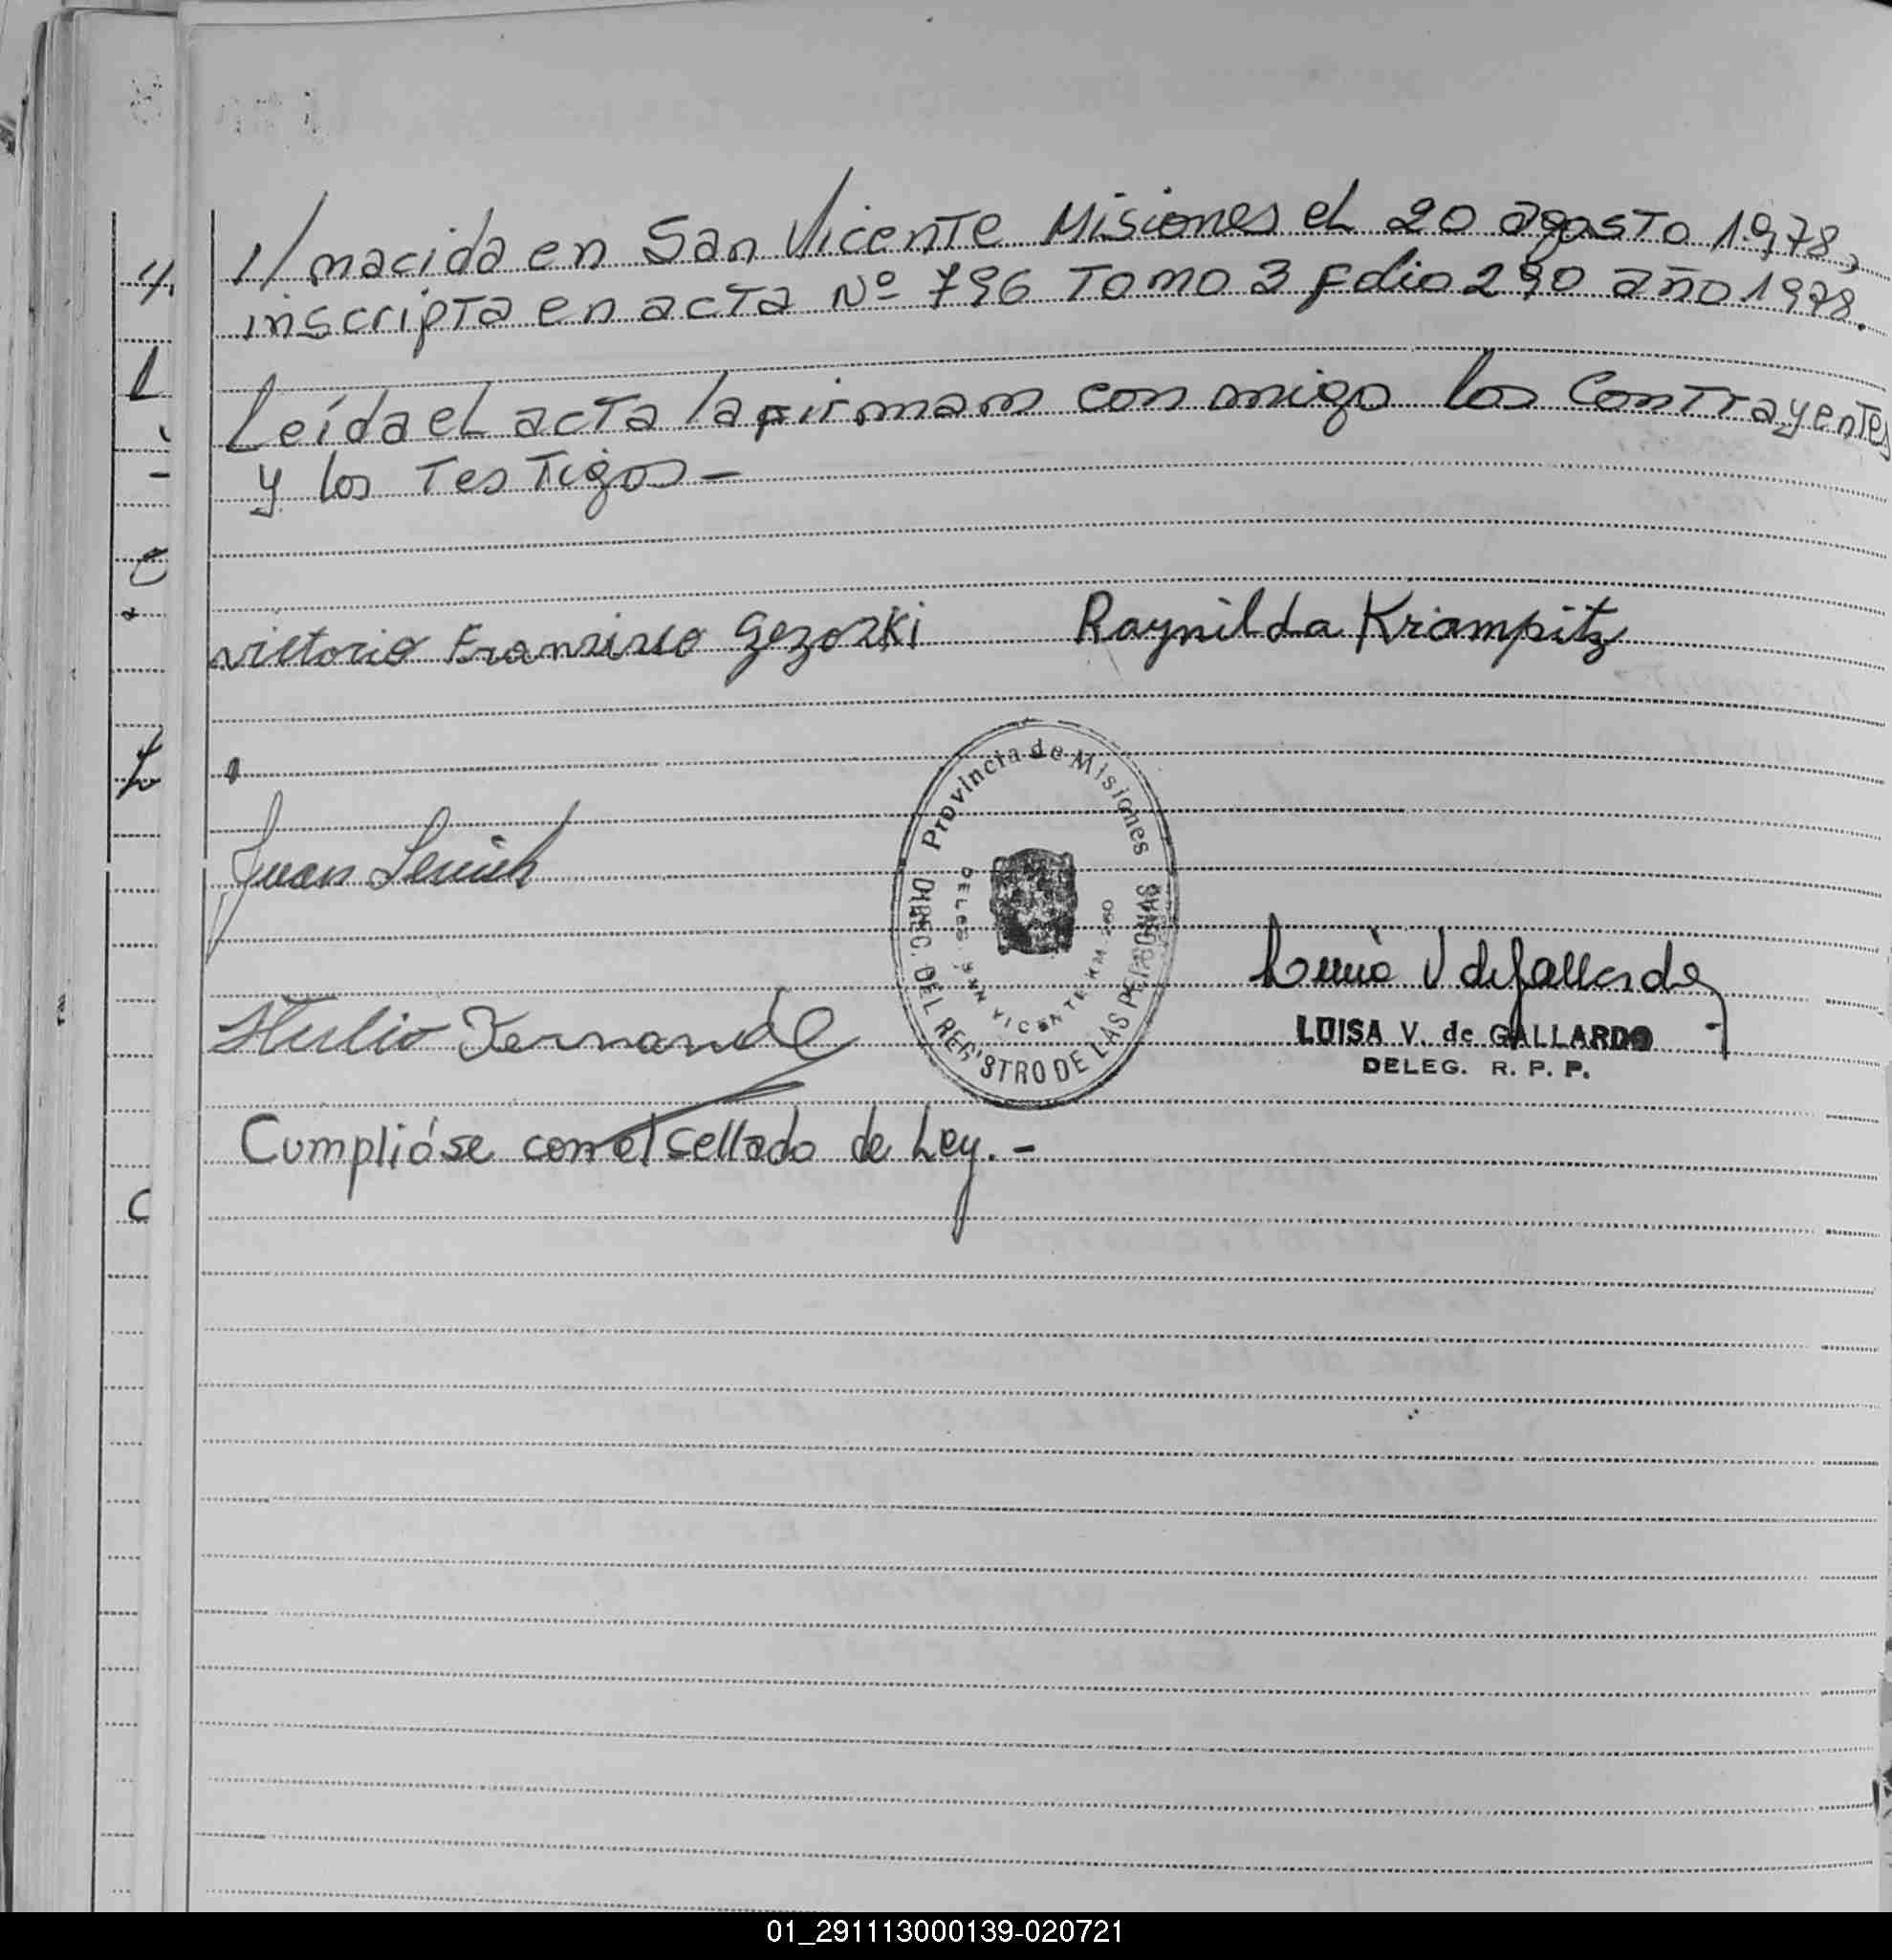 1/ nacida en San Vicente Misiones el 20 agosto 1.978,
inscripta en acta Nº 796 Tomo 3 Folio 290 año 1978.
Leída el acta la firman conmigo los Contrayentes
y los Testigos-
Victorio Francisco Gezozki Raynilda Krampitz
Provincia de Misiones
DIREC. DEL REGISTRO DE LAS PERSONAS
DELEG. SAN VICENTE KM
Juan
LUISA V. de GALLARDO
DELEG. R. P. P.
Cumplióse con el Sellado de Ley.-
01_291113000139-020721